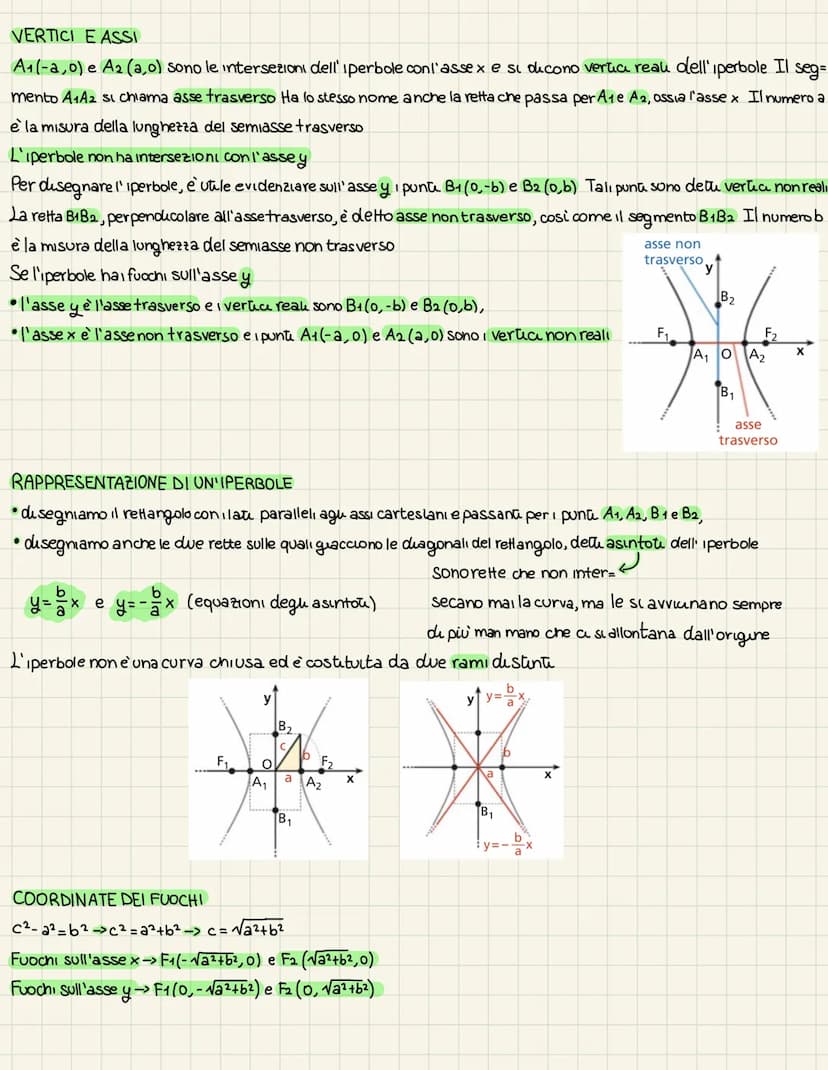 VERTICI E ASSI
A1(-a,0) e A2(a,0) sono le intersezioni dell'iperbole con l'asse x e si dicono vertici reali dell'iperbole Il seg=
mento A1A2 si chiama asse trasverso Ha lo stesso nome anche la retta che passa per A1 e A2, ossia l'asse x Il numero a
è la misura della lunghezza del semiasse trasverso
L'iperbole non ha intersezioni con l'asse y
Per disegnare l'iperbole, è utile evidenziare sull'asse y i punti B1(0,-b) e B2(0,b) Tali punti sono detti vertici non reali
La retta B1B2, perpendicolare all'asse trasverso, è detto asse non trasverso, così come il segmento B1B2 Il numero b
è la misura della lunghezza del semiasse non trasverso
Se l'iperbole ha i fuochi sull'asse y
•l'asse y è l'asse trasverso e i vertici reali sono B1(0,-b) e B2(0,b),
•l'asse x è l'asse non trasverso e i punti A1(-a,0) e A2(a,0) sono i vertici non reali
asse non
trasverso
y
B₂
F₁ F₂
A₁ O A₂ x
B₁
asse
trasverso
RAPPRESENTAZIONE DI UN'IPERBOLE
•disegniamo il rettangolo con i lati paralleli agli assi cartesiani e passanti per i punti A1, A2, B1 e B2,
•disegniamo anche le due rette sulle quali giacciono le diagonali del rettangolo, detti asintoti dell'iperbole
sono rette che non inter=
y=b/a x e y=-b/a x (equazioni degli asintoti) secano mai la curva, ma le si avvicinano sempre
di più man mano che ci si allontana dall'origine
L'iperbole non è una curva chiusa ed è costituita da due rami distinti
y
B₂
c b
F₁ O F₂
A₁ a A₂ x
B₁
y y=b/a x
b
a x
B₁
y=-b/a x
COORDINATE DEI FUOCHI
c²-a²=b² → c²=a²+b² → c=√a²+b²
Fuochi sull'asse x → F1(-√a²+b²,0) e F2(√a²+b²,0)
Fuochi sull'asse y → F1(0,-√a²+b²) e F2(0,√a²+b²)